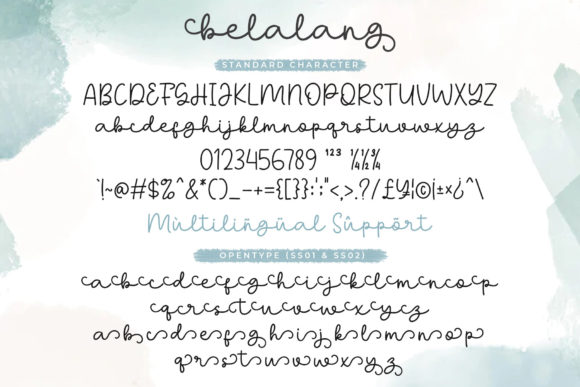 belalang
STANDARD CHARACTER
ABCDEFGHIJKLMNOPQRSTUVWXYZ
abcdefghijklmnopqrstuvwxyz
0123456789 ¹²³ ¼½¾
`!~@#$%^&*()_-+={[}]:;'"<,>.?/£¥¦©¡±×¿^\
Mùltilin̈güal Sûppört
OPENTYPE (SS01 & SS02)
abcdefghijklmnop
qrstuvwxyz
abcdefghijklmnop
qrstuvwxyz